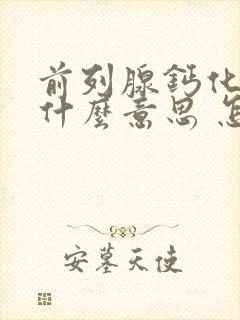 前列腺鈣化
什麼意思 怎
安墓天使